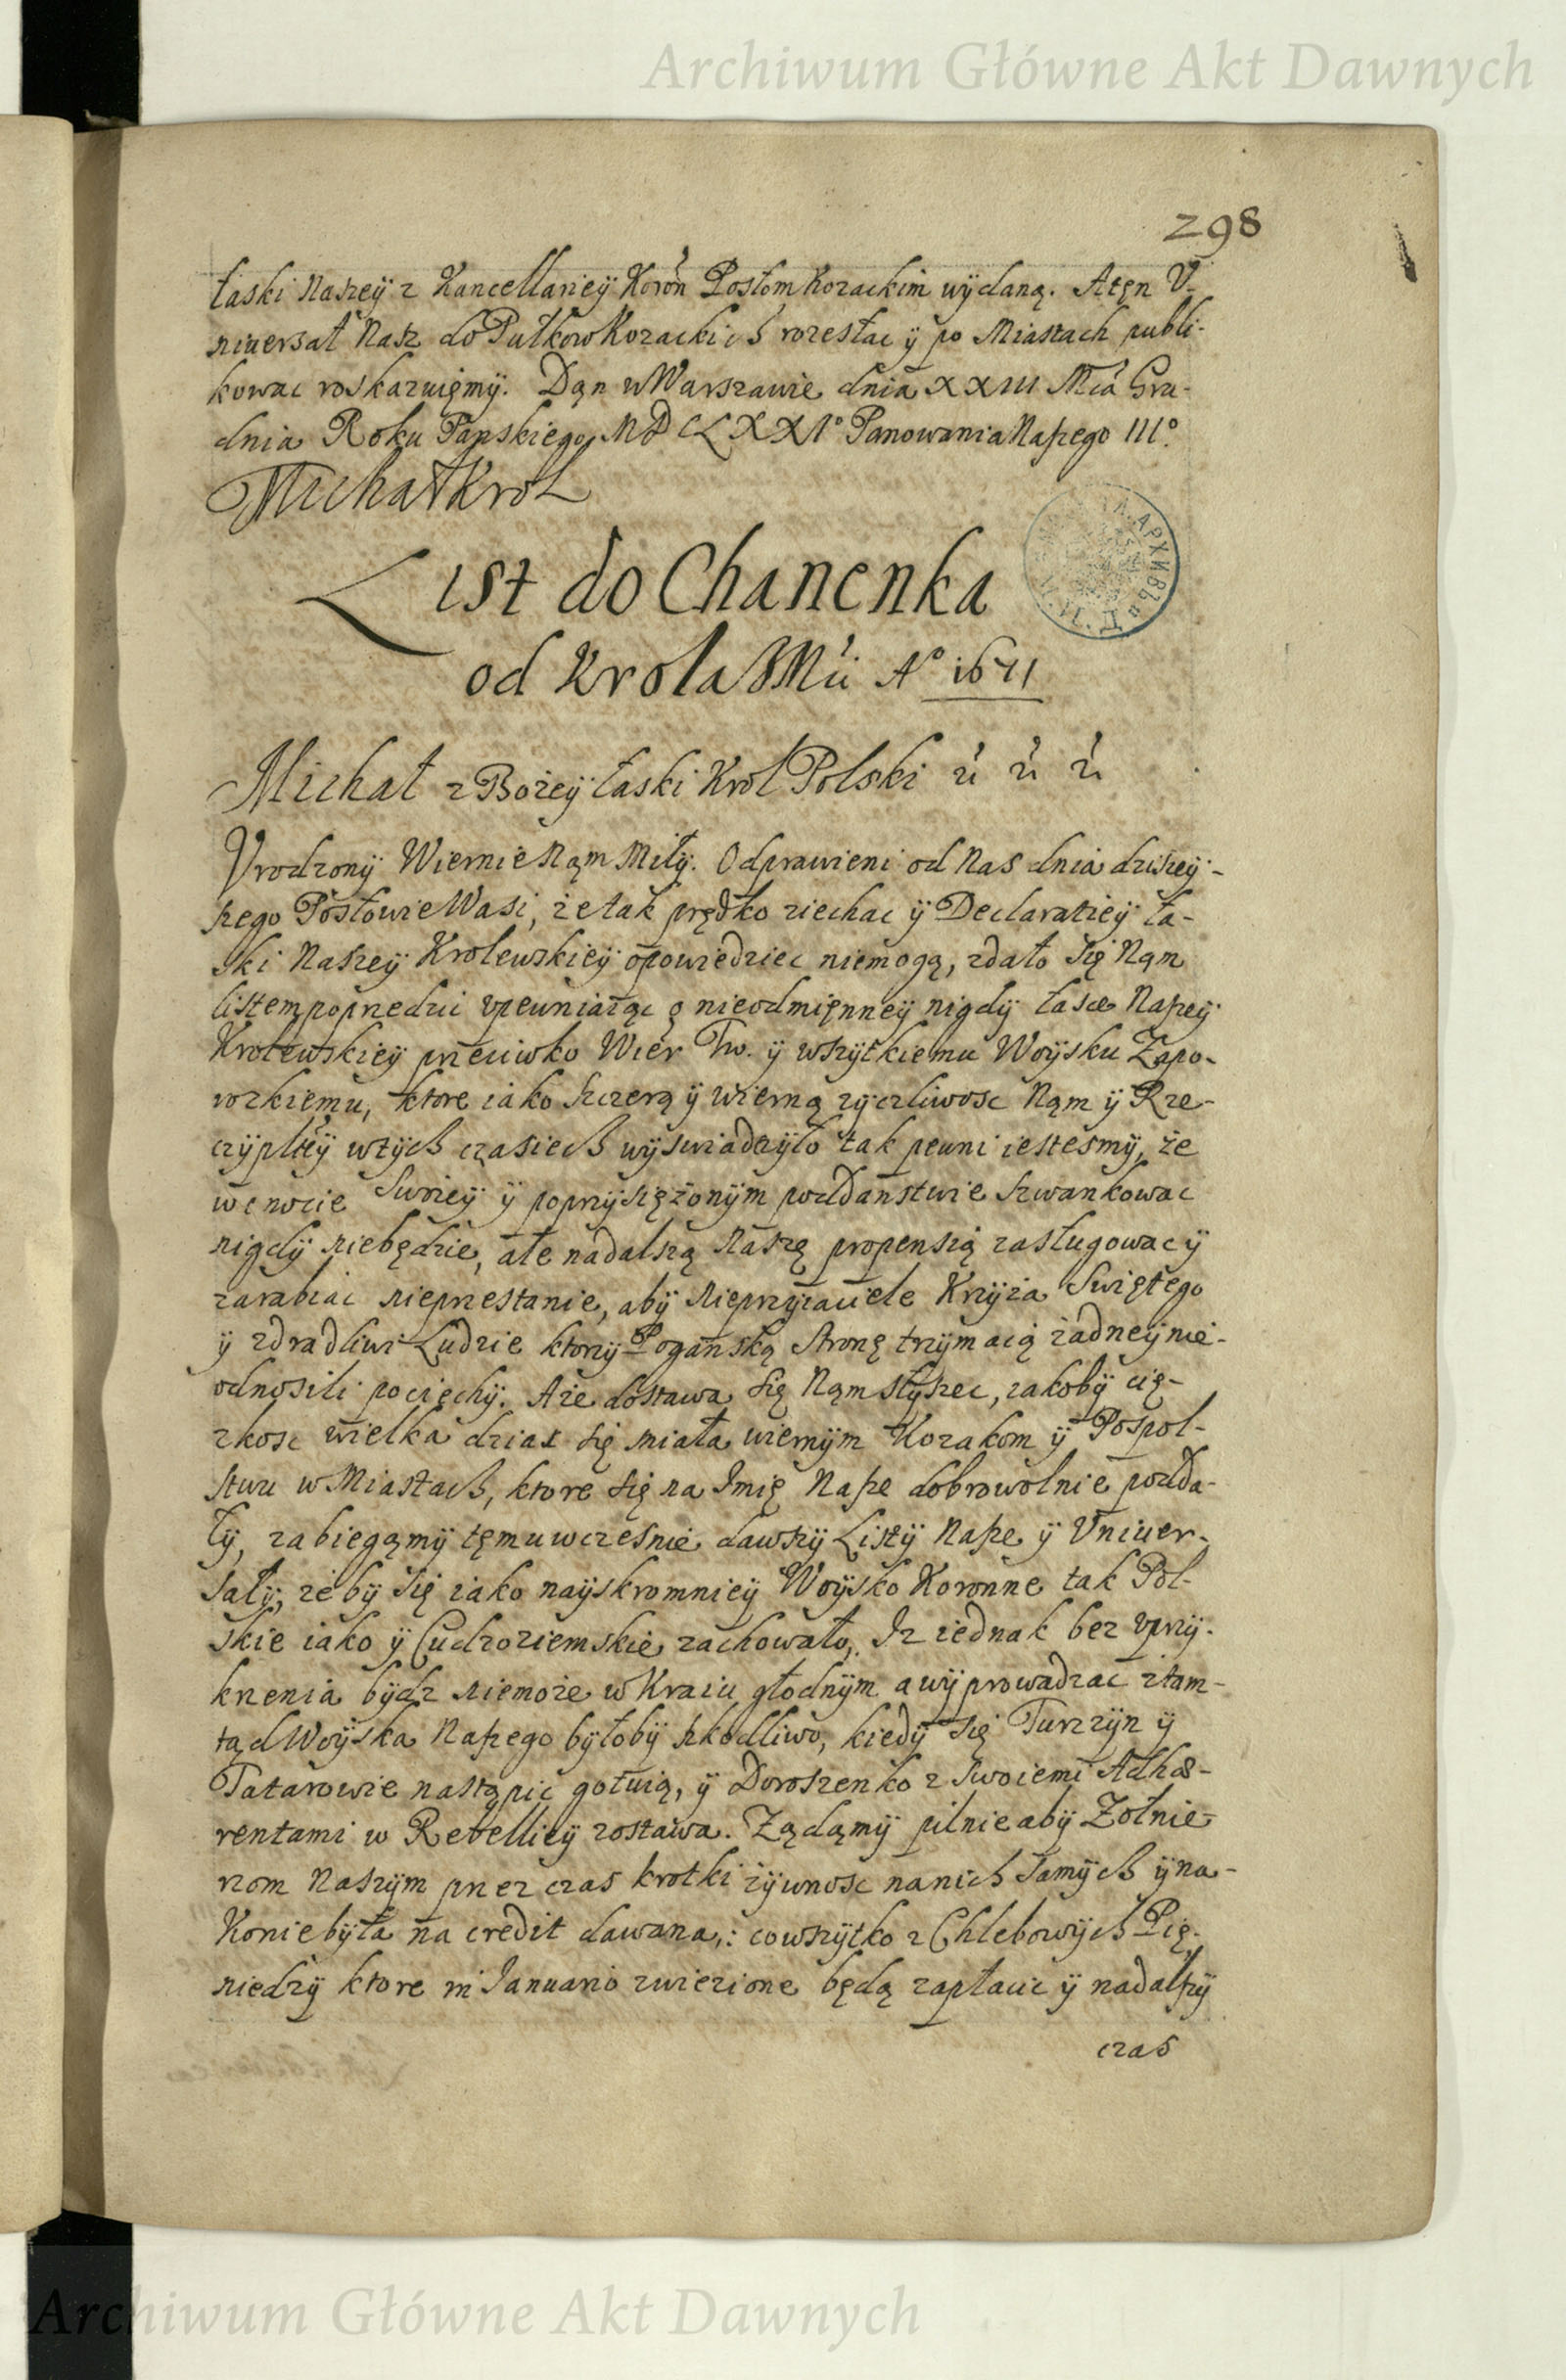 Archiwum Główne Akt Dawnych
298
łaski Naszeÿ z Kancellarieÿ Koron Posłom Kozackim wÿdaną. A tęn V-
niuersał Nasz do Pułkow Kozackich rozesłac ÿ po Miastach publi-
kowac roskazuięmÿ. Dąn w Warszawie dnia XXIII Mca Gru-
dnia Roku Panskiego MDCLXXI° Panowania Naszego III°.
Michał Krol
List do Chanenka
od Krola JMci A° 1671
Michał z Bożeÿ łaski Krol Polski
Vrodzonÿ Wiernie Nąm Miłÿ. Odprawieni od Nas dnia dzisieÿ-
szego Posłowie Wasi, że tak prędko ziechac ÿ Declaratieÿ ła-
ski Naszeÿ Krolewskieÿ opowiedziec niemogą, zdało się Nąm
listem poprzedzic vpewniaiąc o nieodmięnneÿ nigdÿ łasce Naszeÿ
Krolewskieÿ przeciwko Wier Tw. ÿ wszÿtkiemu Woÿsku Zapo-
rozkiemu, ktore iako szczerą ÿ wierną zÿczliwosc Nąm ÿ Rze-
czÿplteÿ w tÿch czasiech wÿswiadczÿło tak pewni iestesmÿ, że
w cnocie Swoieÿ ÿ poprzÿsiężonÿm poddanstwie szwankowac
nigdÿ niebędzie, ale na dalszą Naszę propensią zasługowac ÿ
zarabiac nieprzestanie, abÿ Nieprzÿiaciele Krzÿża Swiętego
ÿ zdradliwi Ludzie ktorzÿ Poganską Stronę trzÿmaią żadneÿ nie-
odnosili pociechÿ. A że dostawa się Nąm słÿszec, iakobÿ cię-
zkosc wielka dziac się miała wiernÿm Kozakom ÿ Pospol-
stwu w Miastach, ktore się na Jmię Nasze dobrowolnie podda-
łÿ, zabiegąmÿ tęmu wczesnie dawszÿ Listÿ Nasze ÿ Vniuer-
sałÿ, żebÿ się iako naÿskromnieÿ Woÿsko Koronne tak Pol-
skie iako ÿ Cudzoziemskie zachowało. Jz iednak bez vprzÿ-
krzenia bÿdz niemoże w Kraiu głodnÿm a wÿprowadzac ztam-
tąd Woÿska Naszego bÿłobÿ szkodliwo, kiedÿ się Turczÿn ÿ
Tatarowie nastąpic gotuią, ÿ Doroszenko z Swoiemi Adhæ-
rentami w Rebellieÿ zostawa. Żądamÿ pilnie abÿ Żołnie-
rzom Naszÿm przez czas krotki żÿwnosc na nich samÿch ÿ na
Konie bÿła na credit dawana,: co wszÿtko z Chlebowÿch Pię-
niedzÿ ktore in Januario zwiezione będą zapłacic ÿ na dalszÿ
czas
Archiwum Główne Akt Dawnych